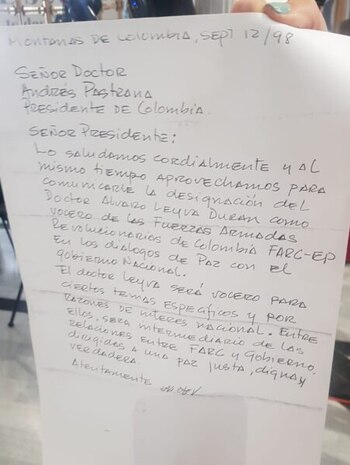 Montañas de Colombia, Sept 12/98
Señor Doctor
Andres Pastrana
Presidente de Colombia.
Señor Presidente:
Lo saludamos cordialmente y al
mismo tiempo aprovechamos para
comunicarle la designación del
Doctor Alvaro Leyva Duran como
vocero de las Fuerzas Armadas
Revolucionarios de Colombia FARC-EP
en los dialogos de Paz con el
gobierno Nacional.
El doctor Leyva será vocero para
ciertos temas especificos y por
razones de interes nacional. Entre
ellos, será intermediario de las
relaciones entre FARC y gobierno,
dirigidos a una paz justa, digna y
verdadera
Atentamente